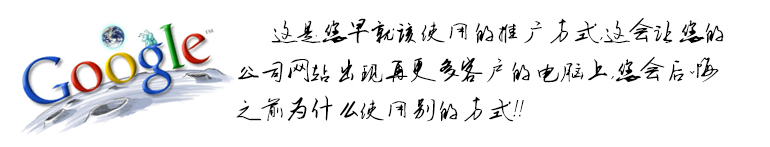 Google™
这是您早就该使用的推广方式,这会让您的
公司网站出现再更多客户的电脑上,您会后悔
之前为什么使用别的方式!!